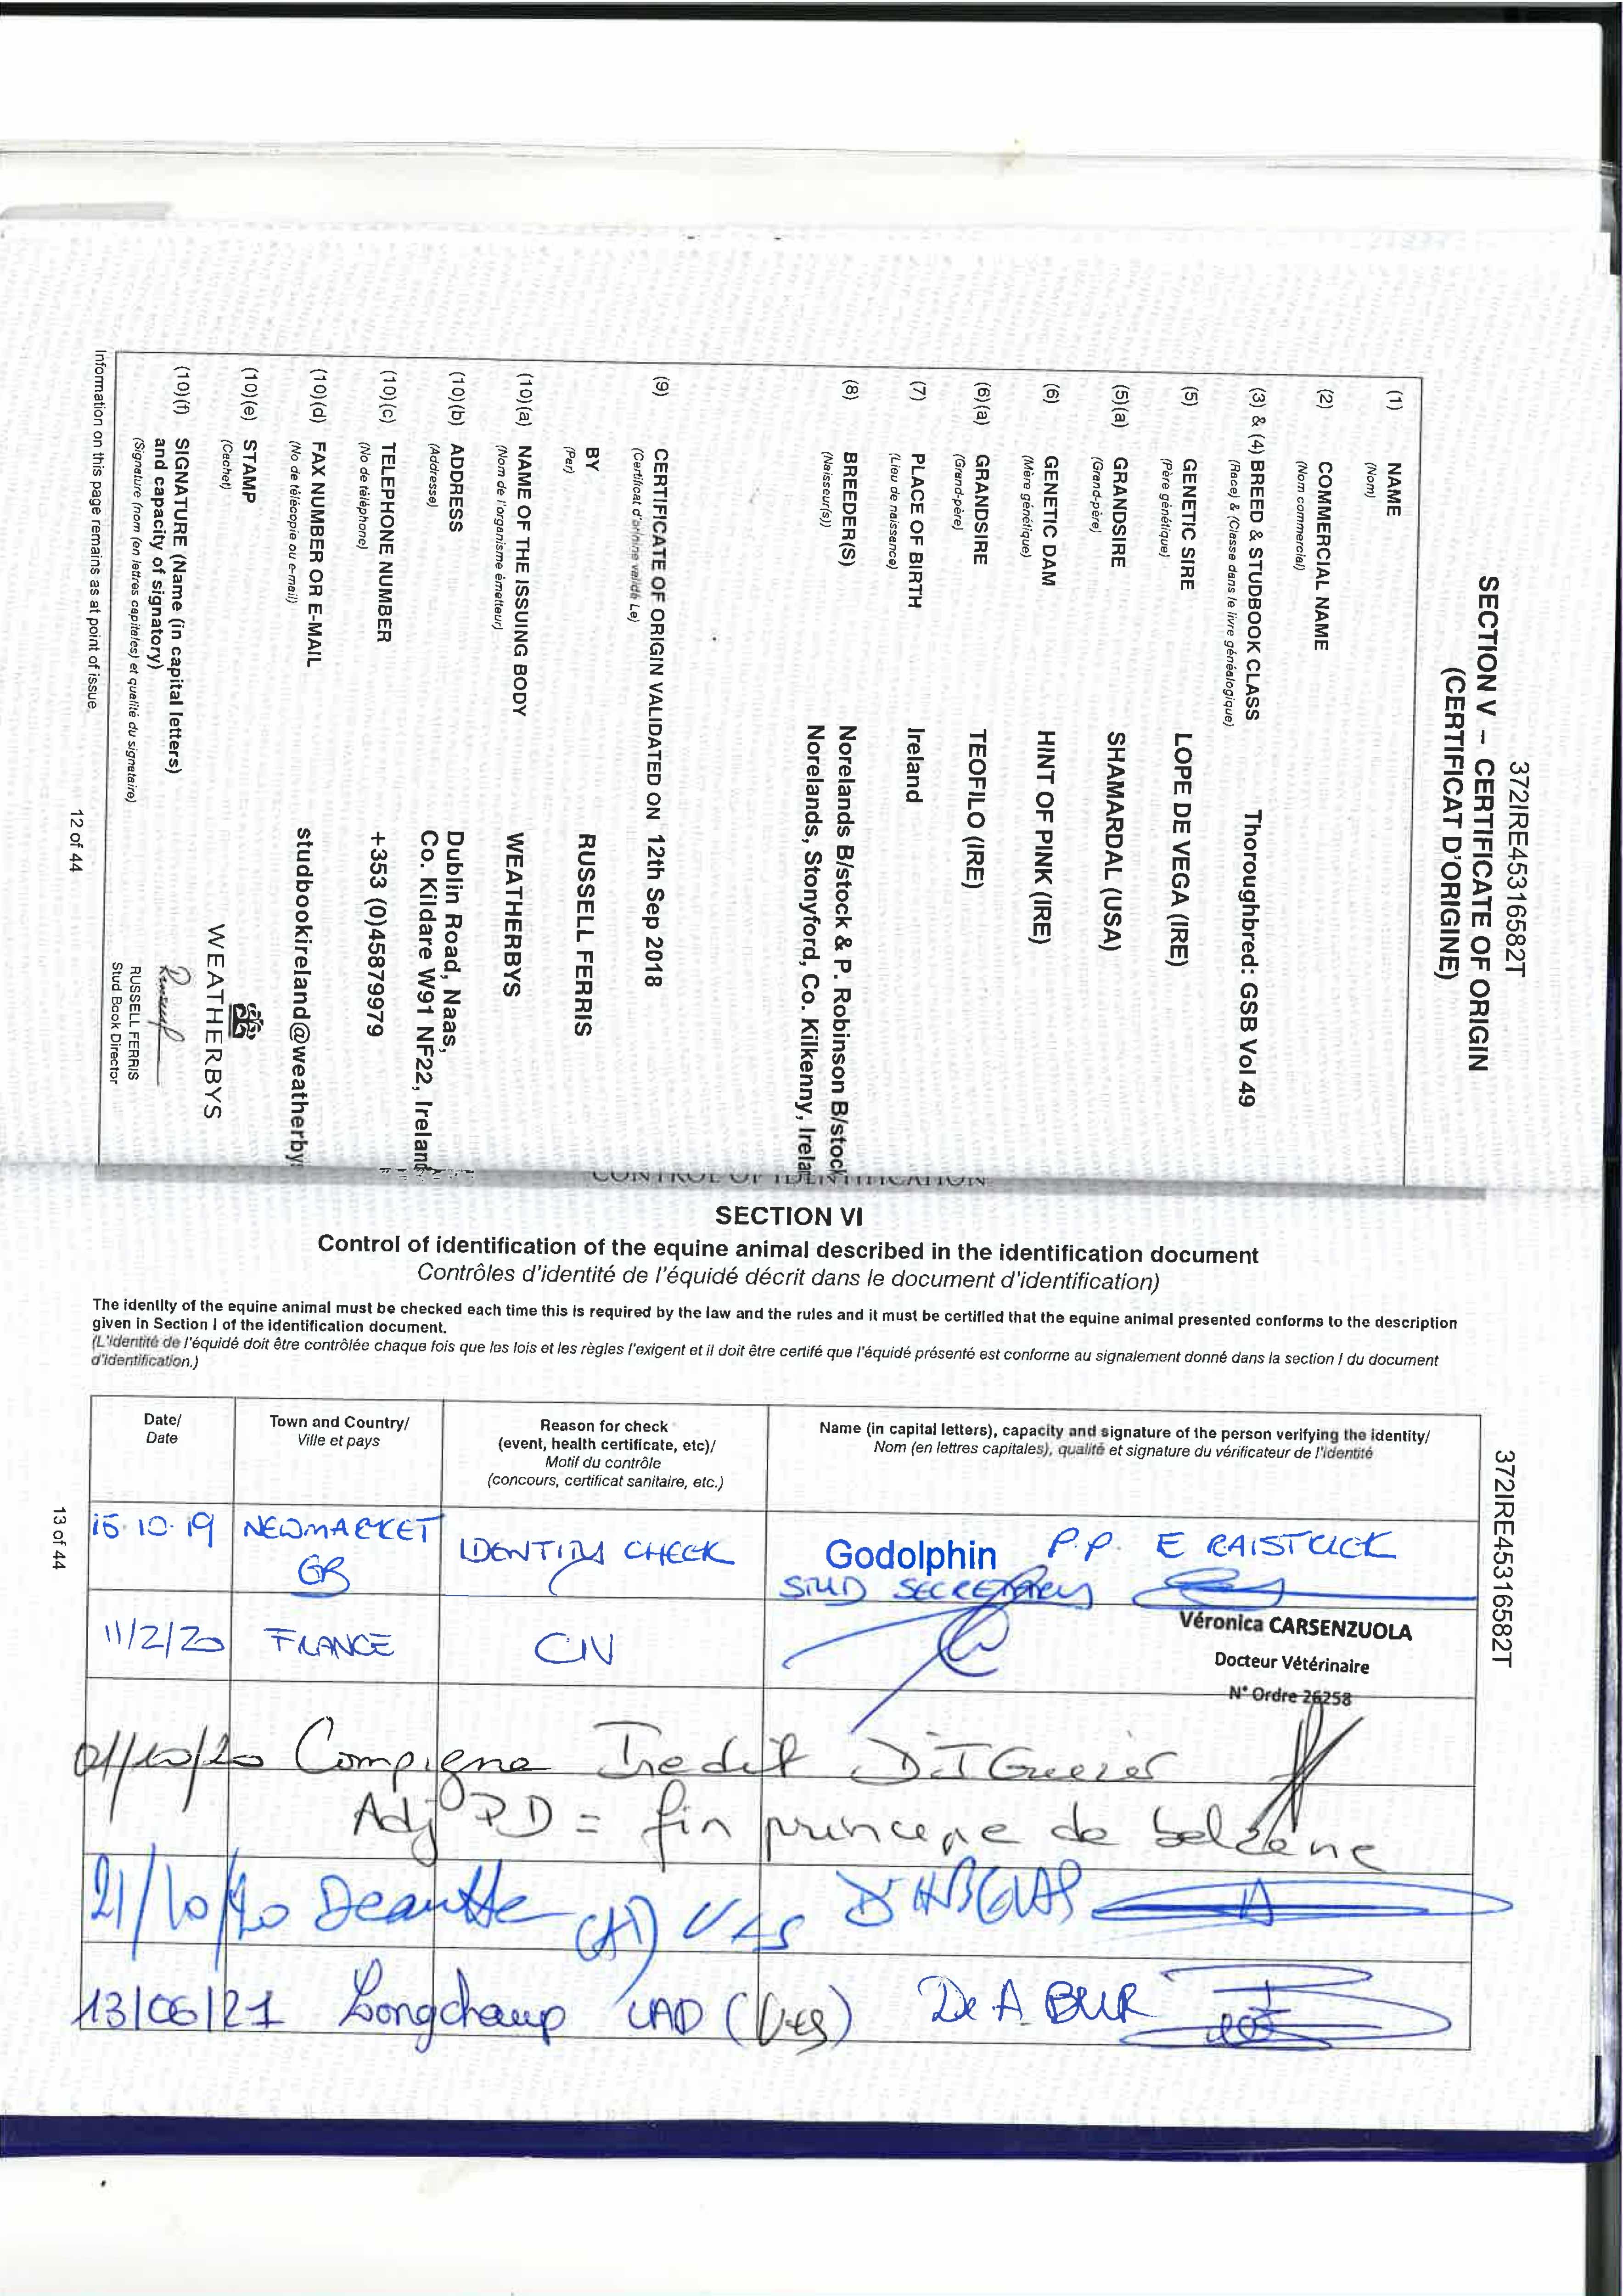 372IRE45316582T
SECTION V – CERTIFICATE OF ORIGIN
(CERTIFICAT D'ORIGINE)
(1) NAME
(Nom)
(2) COMMERCIAL NAME
(Nom commercial)
(3) & (4) BREED & STUDBOOK CLASS Thoroughbred: GSB Vol 49
(Race) & (Classe dans le livre généalogique)
(5) GENETIC SIRE LOPE DE VEGA (IRE)
(Père génétique)
(5)(a) GRANDSIRE SHAMARDAL (USA)
(Grand-père)
(6) GENETIC DAM HINT OF PINK (IRE)
(Mère génétique)
(6)(a) GRANDSIRE TEOFILO (IRE)
(Grand-père)
(7) PLACE OF BIRTH Ireland
(Lieu de naissance)
(8) BREEDER(S) Norelands B/stock & P. Robinson B/stock
(Naisseur(s)) Norelands, Stonyford, Co. Kilkenny, Irela
(9) CERTIFICATE OF ORIGIN VALIDATED ON 12th Sep 2018
(Certificat d'origine validé Le)
BY RUSSELL FERRIS
(Par)
(10)(a) NAME OF THE ISSUING BODY WEATHERBYS
(Nom de l'organisme émetteur)
(10)(b) ADDRESS Dublin Road, Naas,
(Addresse) Co. Kildare W91 NF22, Ireland
(10)(c) TELEPHONE NUMBER +353 (0)45879979
(No de téléphone)
(10)(d) FAX NUMBER OR E-MAIL studbookireland@weatherbys
(No de télécopie ou e-mail)
(10)(e) STAMP
(Cachet)
WEATHERBYS
(10)(f) SIGNATURE (Name (in capital letters)
and capacity of signatory)
(Signature (nom (en lettres capitales) et qualité du signataire)
RUSSELL FERRIS
Stud Book Director
Information on this page remains as at point of issue.
12 of 44
CONTROL OF IDENTIFICATION
SECTION VI
Control of identification of the equine animal described in the identification document
Contrôles d'identité de l'équidé décrit dans le document d'identification)
The identity of the equine animal must be checked each time this is required by the law and the rules and it must be certified that the equine animal presented conforms to the description
given in Section I of the identification document.
(L'identité de l'équidé doit être contrôlée chaque fois que les lois et les règles l'exigent et il doit être certifé que l'équidé présenté est conforme au signalement donné dans la section I du document
d'identification.)
Date/
Date
Town and Country/
Ville et pays
Reason for check
(event, health certificate, etc)/
Motif du contrôle
(concours, certificat sanitaire, etc.)
Name (in capital letters), capacity and signature of the person verifying the identity/
Nom (en lettres capitales), qualité et signature du vérificateur de l'identité
15.10.19 NEWMARKET GB IDENTITY CHECK Godolphin P.P. E RAISTRICK
STUD SECRETARY
11/2/20 FRANCE CIV Véronica CARSENZUOLA
Docteur Vétérinaire
N° Ordre 26258
01/10/20 Compiegne Inedit
Adj PD = fin principe de balzane
21/10/20 Deauville
13/06/21 Longchamp LAD (Ves) Dr A. BUR
372IRE45316582T
13 of 44